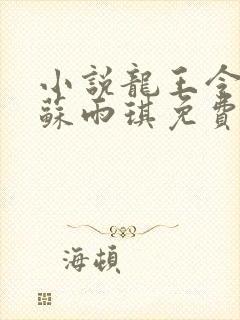 小說龍王令
蘇雨琪免費
海頓